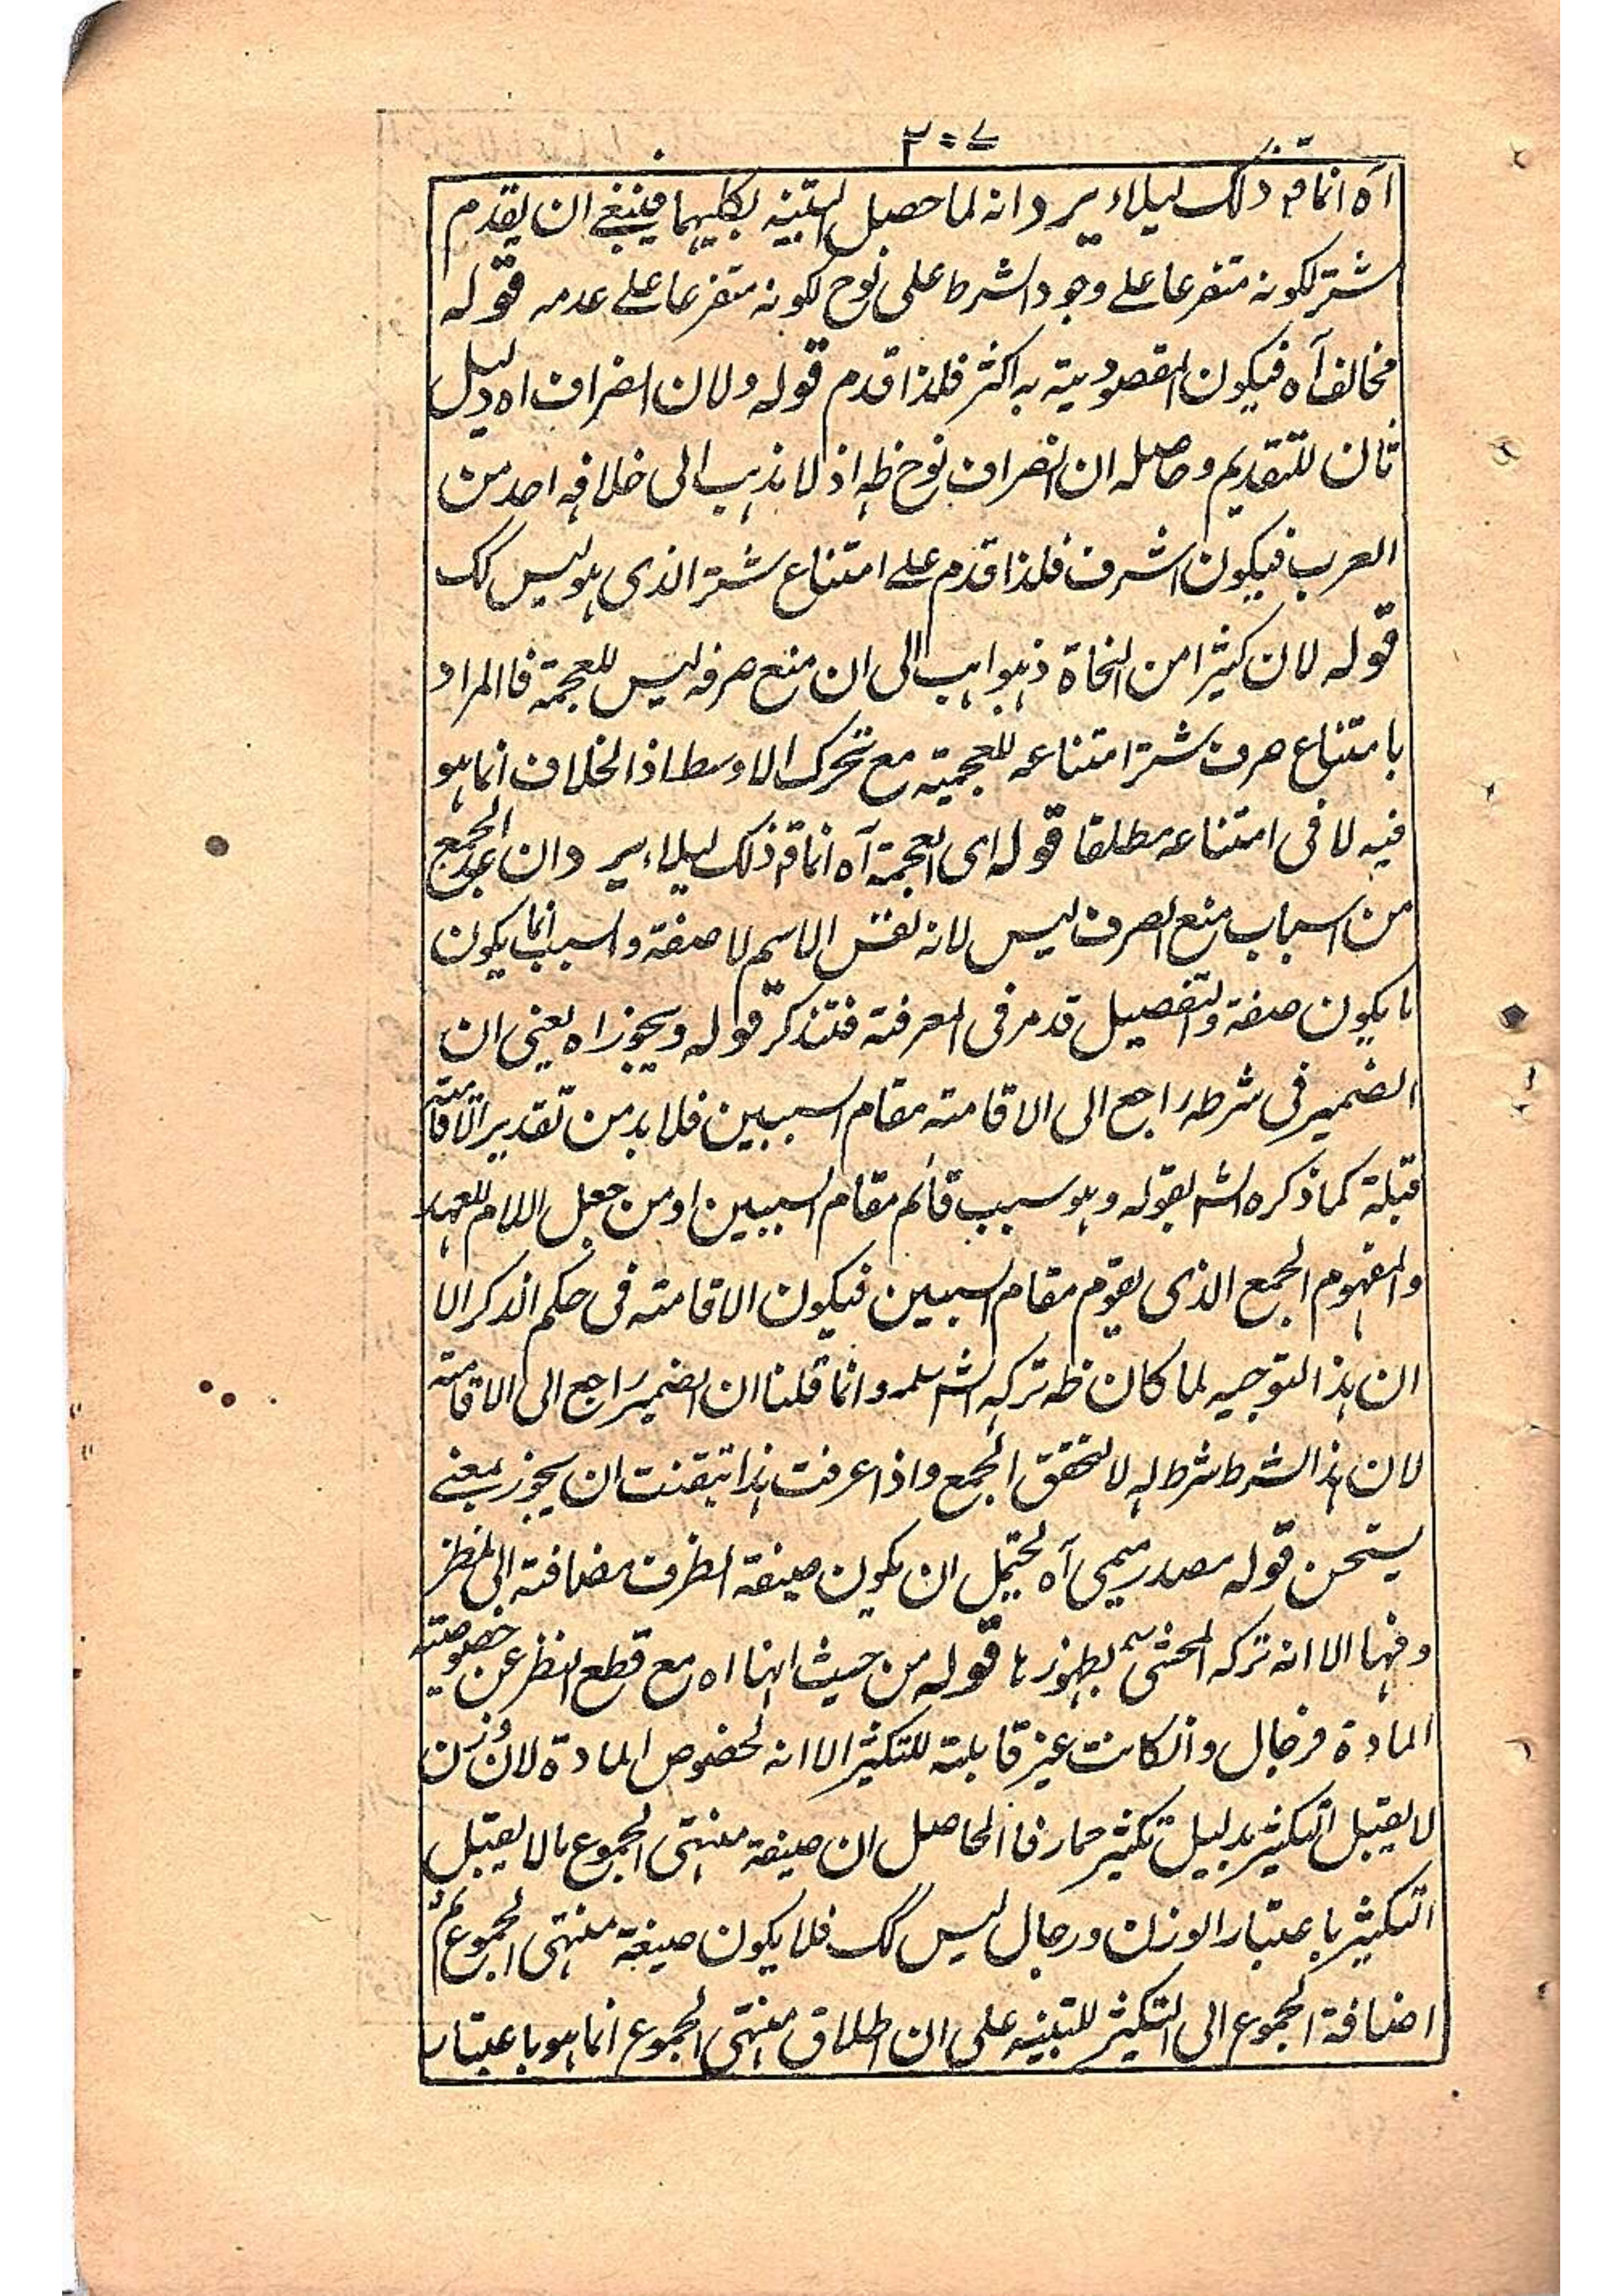 ٢٠٧
آه انما قد ذلك ليلاء يرد انه لما حصل التبنيه بكليهما فينبغي ان يقدم
شتر لكونه متفرعا على وجود الشرط على نوح لكونه متفرعا على عدمه قوله
مخالف آه فيكون المقصودية به اكثر فلذا قدم قوله ولان انصراف اه دليل
ثان للتقديم وحاصله ان انصراف نوح ظه اذ لا يذهب الى خلافه احد من
العرب فيكون اشرف فلذا قدم على امتناع شتر الذي هو ليس كك
قوله لان كثيرا من النحاة ذهبوا الى ان منع صرفه ليس للعجمة فالمراد
بامتناع صرف شتر امتناعه للعجمية مع تحرك الاوسط اذ الخلاف انما هو
فيه لا في امتناعه مطلقا قوله اى العجمة آه انما قد ذلك ليلاء يرد ان عد الجمع
من اسباب منع الصرف ليس لانه نفس الاسم لا صفة والسبب انما يكون
ما يكون صفة والتفصيل قد مر في المعرفة فتذكر قوله ويجوز اه يعني ان
الضمير في شرطه راجع الى الاقامته مقام السببين فلا بد من تقدير الاقامته
قبلة كما ذكره الش بقوله وهو سبب قائم مقام السببين او من جعل اللام للعهد
والمفهوم الجمع الذى يقوم مقام السببين فيكون الاقامته في حكم الذكر الا
ان هذا التوجيه لما كان ظه تركه الش سلمه وانما قلنا ان الضمير راجع الى الاقامته
لان هذا الشرط شرط له لا لتحقق الجمع واذا عرفت هذا تيقنت ان يجوز بمعنى
يستحن قوله مصدر ميمى آه يحتمل ان يكون صيغة الظرف مضافته الى المظر
وفيها الا انه تركه المحشى لظهوزها قوله من حيث انها اه مع قطع النظر عن خصوصيته
المادة فرجال وانكانت غيز قابلته للتكثير الا انه لخصوص المادة لان وزن
لا يقبل التكثير بدليل تكثير حمار فالحاصل ان صيغة منتهى الجموع مالا يقبل
التكثير باعتبار الوزن ورجال ليس كك فلا يكون صيغة منتهى الجموع ثم
اضافة الجموع الى التكثير للتبنيه على ان اطلاق منتهى الجموع انما هو باعتبار